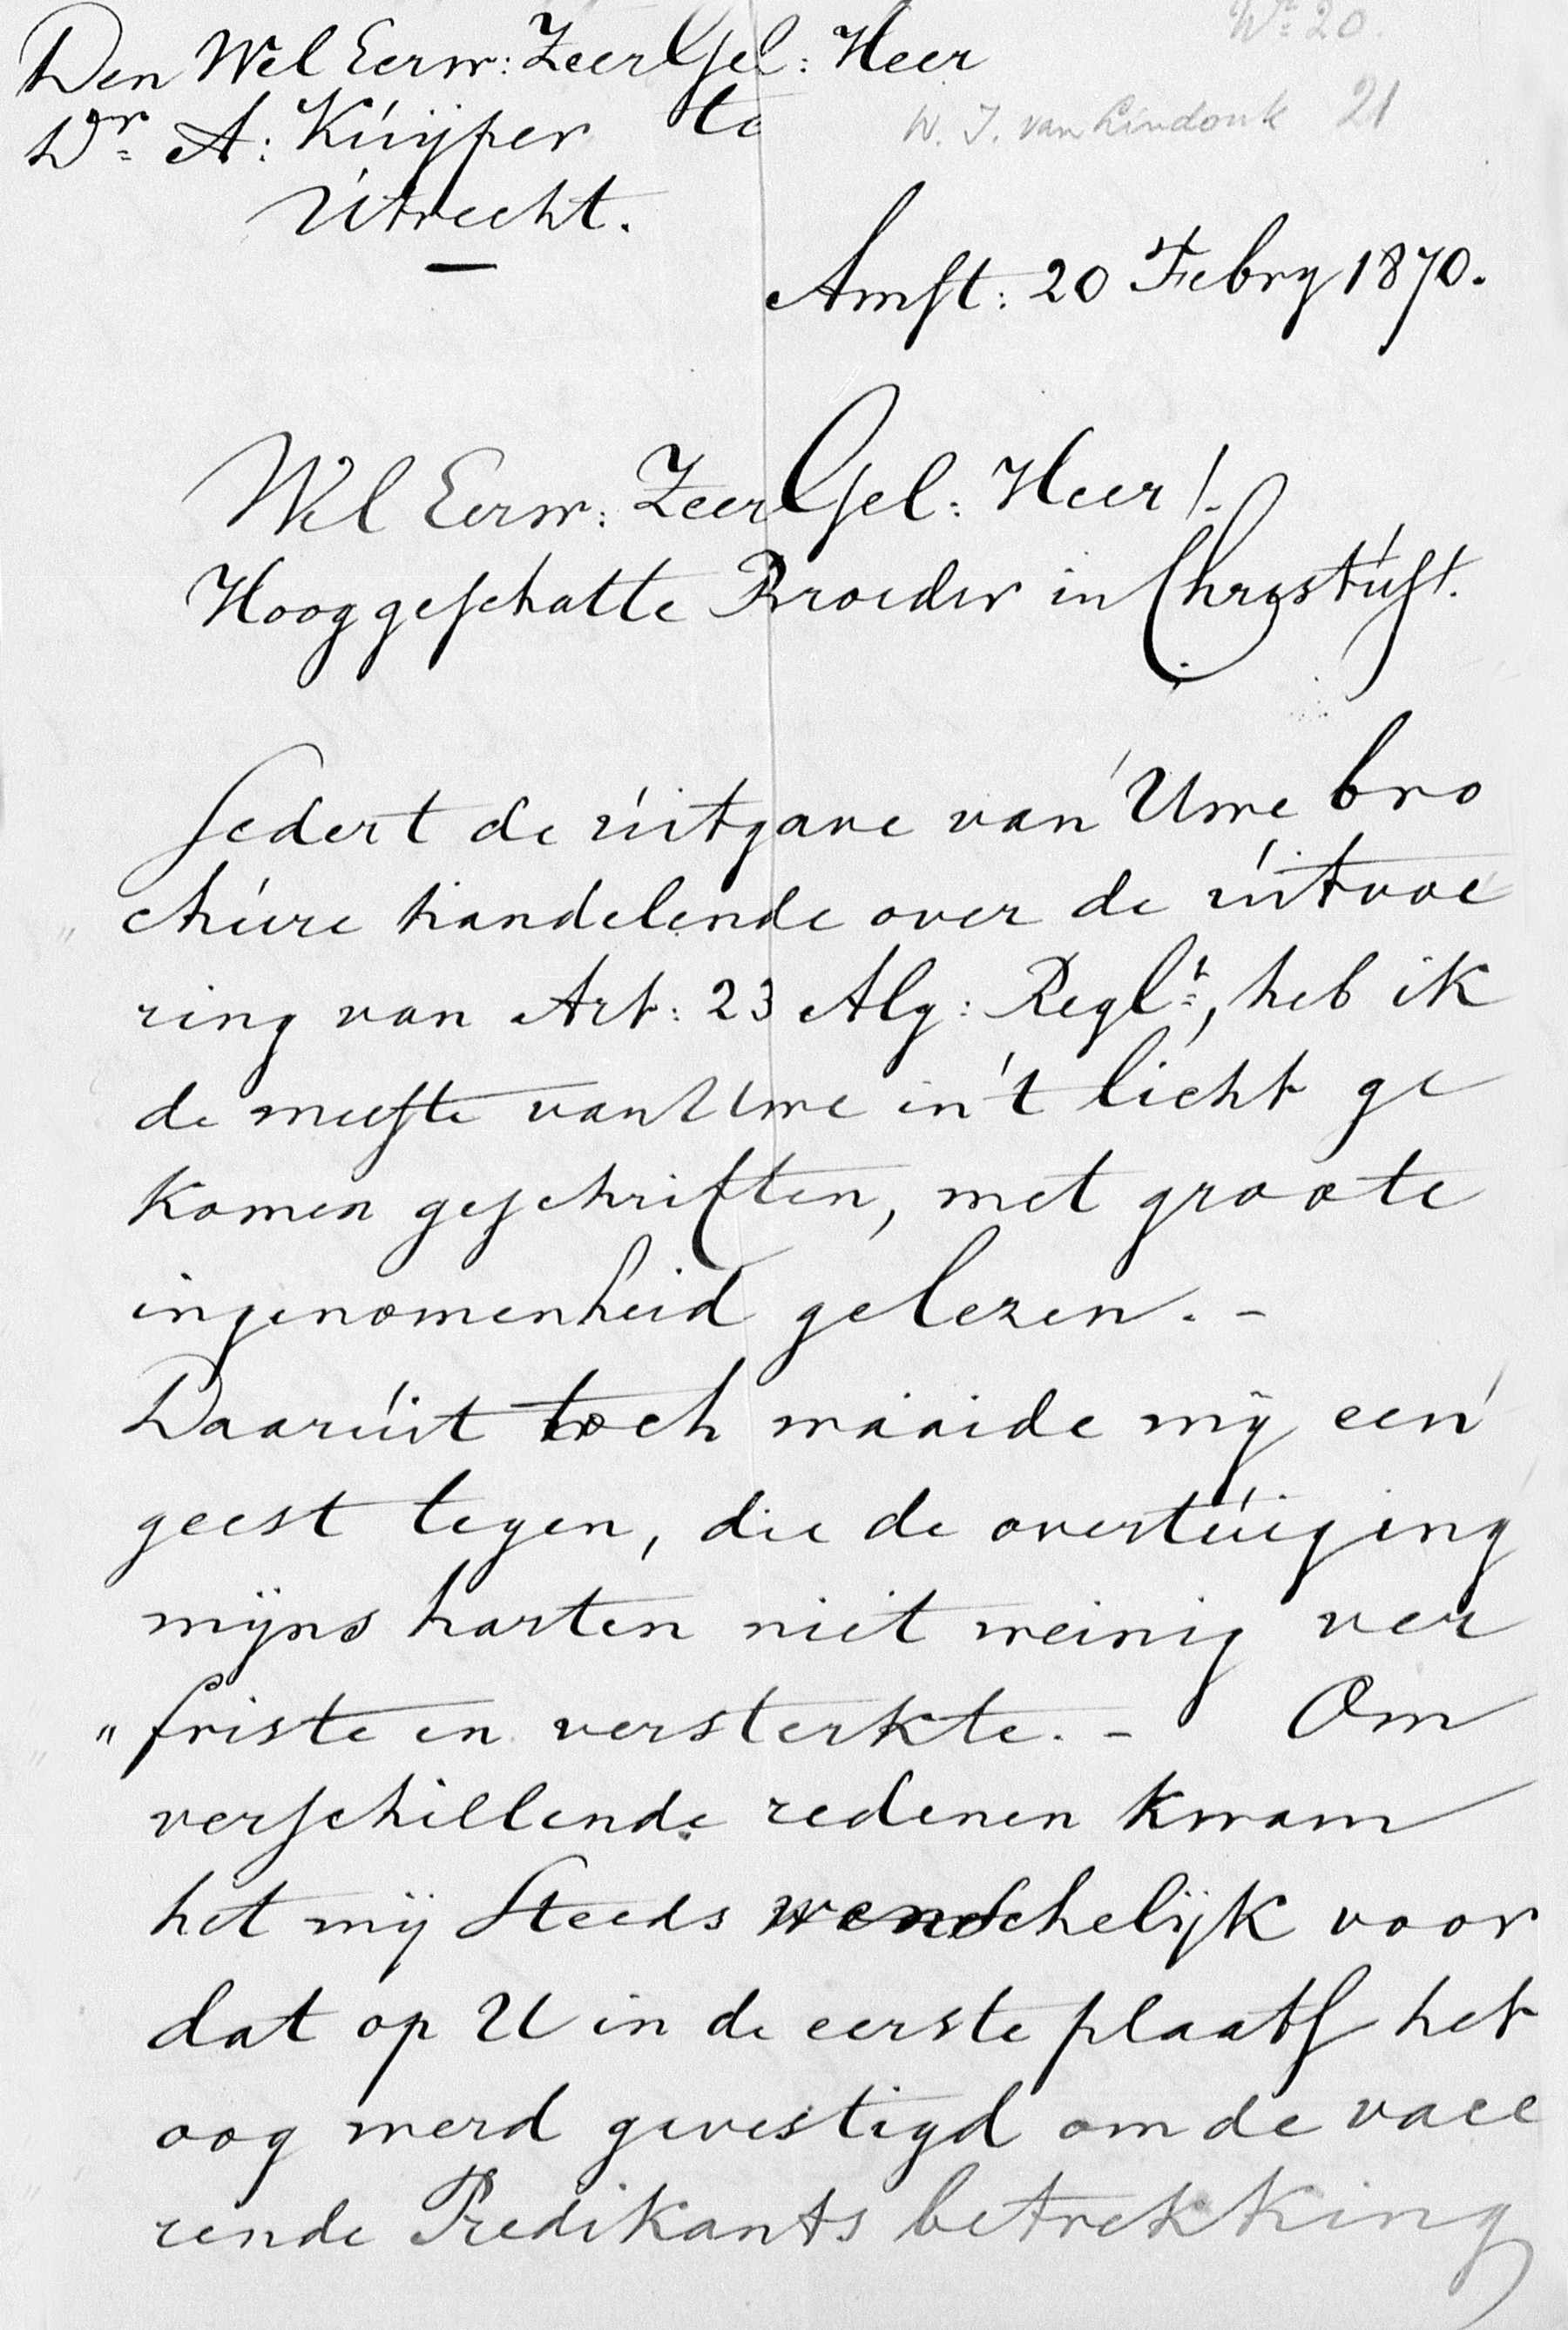 Nº 20.
Den Wel Eerw: Zeer Gel: Heer
Dr A: Kuijper te
W. J. van Lindonk 21
Utrecht.
Amst: 20 Febry 1870.
Wel Eerw: Zeer Gel: Heer!
Hooggeschatte Broeder in Christus!
Sedert de uitgave van Uwe bro
chure handelende over de uitvoe
ring van Art: 23 Alg: Reglt, heb ik
de meeste van Uwe in 't licht ge
komen geschriften, met groote
ingenomenheid gelezen. -
Daaruit toch waaide mij een
geest tegen, die de overtuiging
mijns harten niet weinig ver
" friste en versterkte. - Om
verschillende redenen kwam
het mij steeds wenschelijk voor
dat op U in de eerste plaats het
oog werd gevestigd om de vace
rende Predikants betrekking